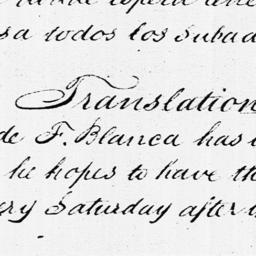 espera
sa todos los Subad
Translation
de F. Blanca has
he hopes to have the
ery Saturday after